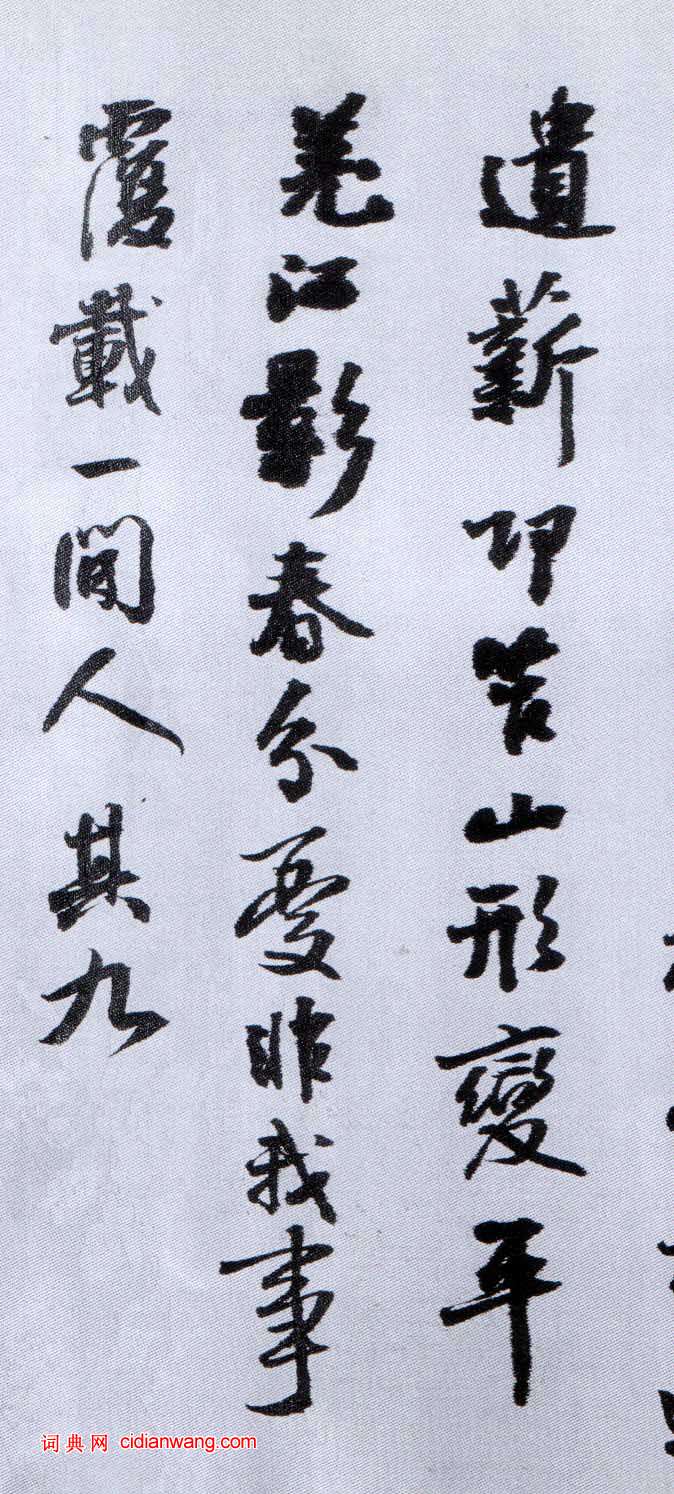 遺薪卭笮山形變平
羌江影春分憂非我事
覆載一閒人其九
词典网 cidianwang.com